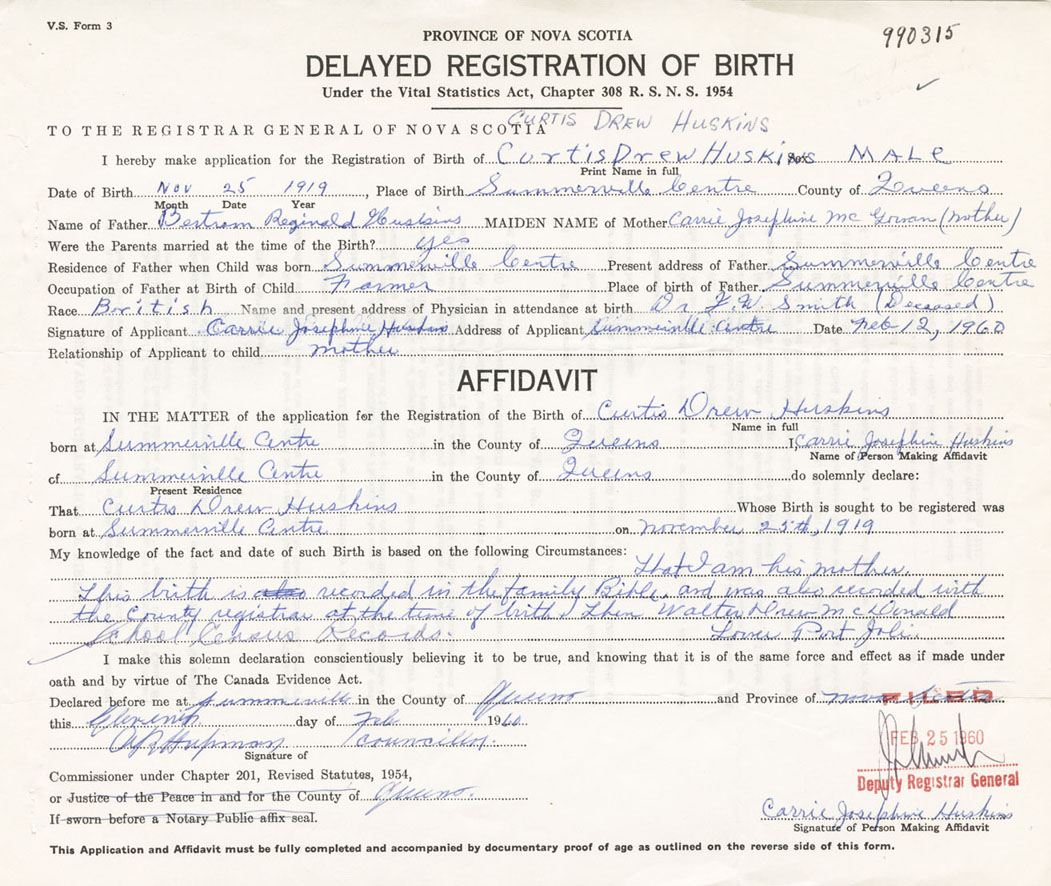 V.S. Form 3
990315
PROVINCE OF NOVA SCOTIA
DELAYED REGISTRATION OF BIRTH
Under the Vital Statistics Act, Chapter 308 R. S. N. S. 1954
CURTIS DREW HUSKINS
TO THE REGISTRAR GENERAL OF NOVA SCOTIA
I hereby make application for the Registration of Birth of Curtis Drew Huskins Sex MALE
Print Name in full
Date of Birth Nov 25 1919, Place of Birth Summerville Centre County of Queens
Month Date Year
Name of Father Bertram Reginald Huskins MAIDEN NAME of Mother Carrie Josephine Mc Gowan (Mother)
Were the Parents married at the time of the Birth? yes
Residence of Father when Child was born Summerville Centre Present address of Father Summerville Centre
Occupation of Father at Birth of Child Farmer Place of birth of Father Summerville Centre
Race British Name and present address of Physician in attendance at birth Dr F. W. Smith (Deceased)
Signature of Applicant Carrie Josephine Huskins Address of Applicant Summerville Centre Date Feb 12, 1960
Relationship of Applicant to child mother
AFFIDAVIT
IN THE MATTER of the application for the Registration of the Birth of Curtis Drew Huskins
Name in full
born at Summerville Centre in the County of Queens I, Carrie Josephine Huskins
Name of Person Making Affidavit
of Summerville Centre in the County of Queens do solemnly declare:
Present Residence
That Curtis Drew Huskins Whose Birth is sought to be registered was
born at Summerville Centre on November 25th, 1919
My knowledge of the fact and date of such Birth is based on the following Circumstances:
That I am his mother.
This birth is also recorded in the family Bible, and was also recorded with
the County registrar at the time of birth, then Walter Drew McDonald
School Census Records. Lower Port Joli.
I make this solemn declaration conscientiously believing it to be true, and knowing that it is of the same force and effect as if made under
oath and by virtue of The Canada Evidence Act.
Declared before me at Summerville in the County of Queens and Province of Nova Scotia
FILED
this Eleventh day of Feb 1960
councillor.
FEB 25 1960
Signature of
Commissioner under Chapter 201, Revised Statutes, 1954,
Deputy Registrar General
or Justice of the Peace in and for the County of Queens.
Carrie Josephine Huskins
If sworn before a Notary Public affix seal.
Signature of Person Making Affidavit
This Application and Affidavit must be fully completed and accompanied by documentary proof of age as outlined on the reverse side of this form.